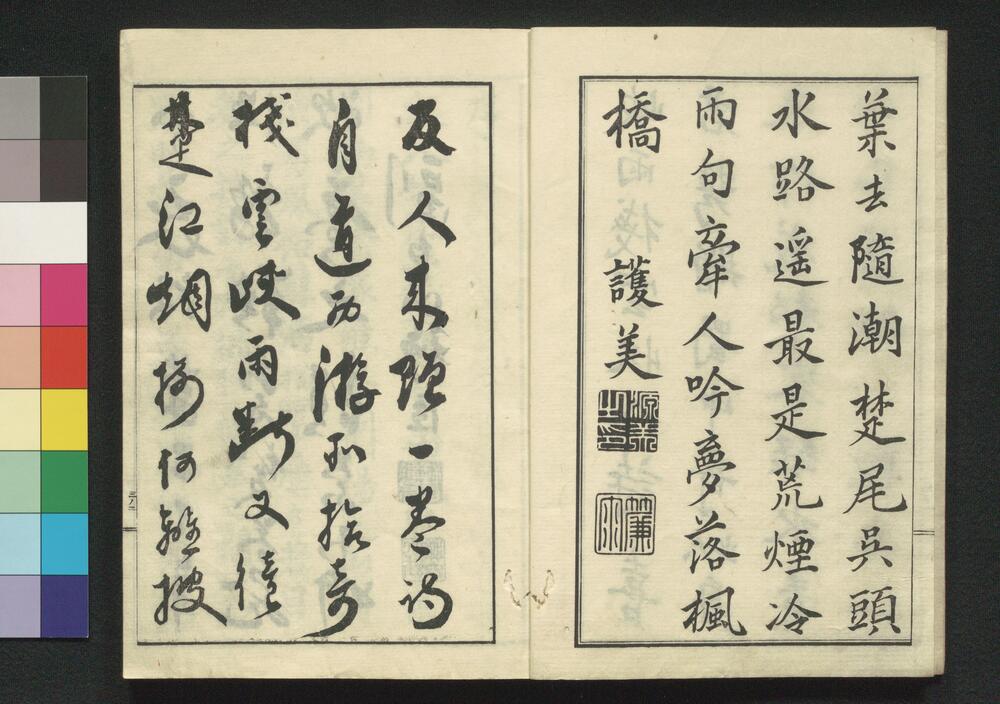 葉去隨潮楚尾呉頭
水路遥最是荒煙冷
雨句牽人吟夢落楓
橋 護美
友人来贈一巻詩
自道西游所拾奇
棧雲峡雨断又
楚江烟樹何離披